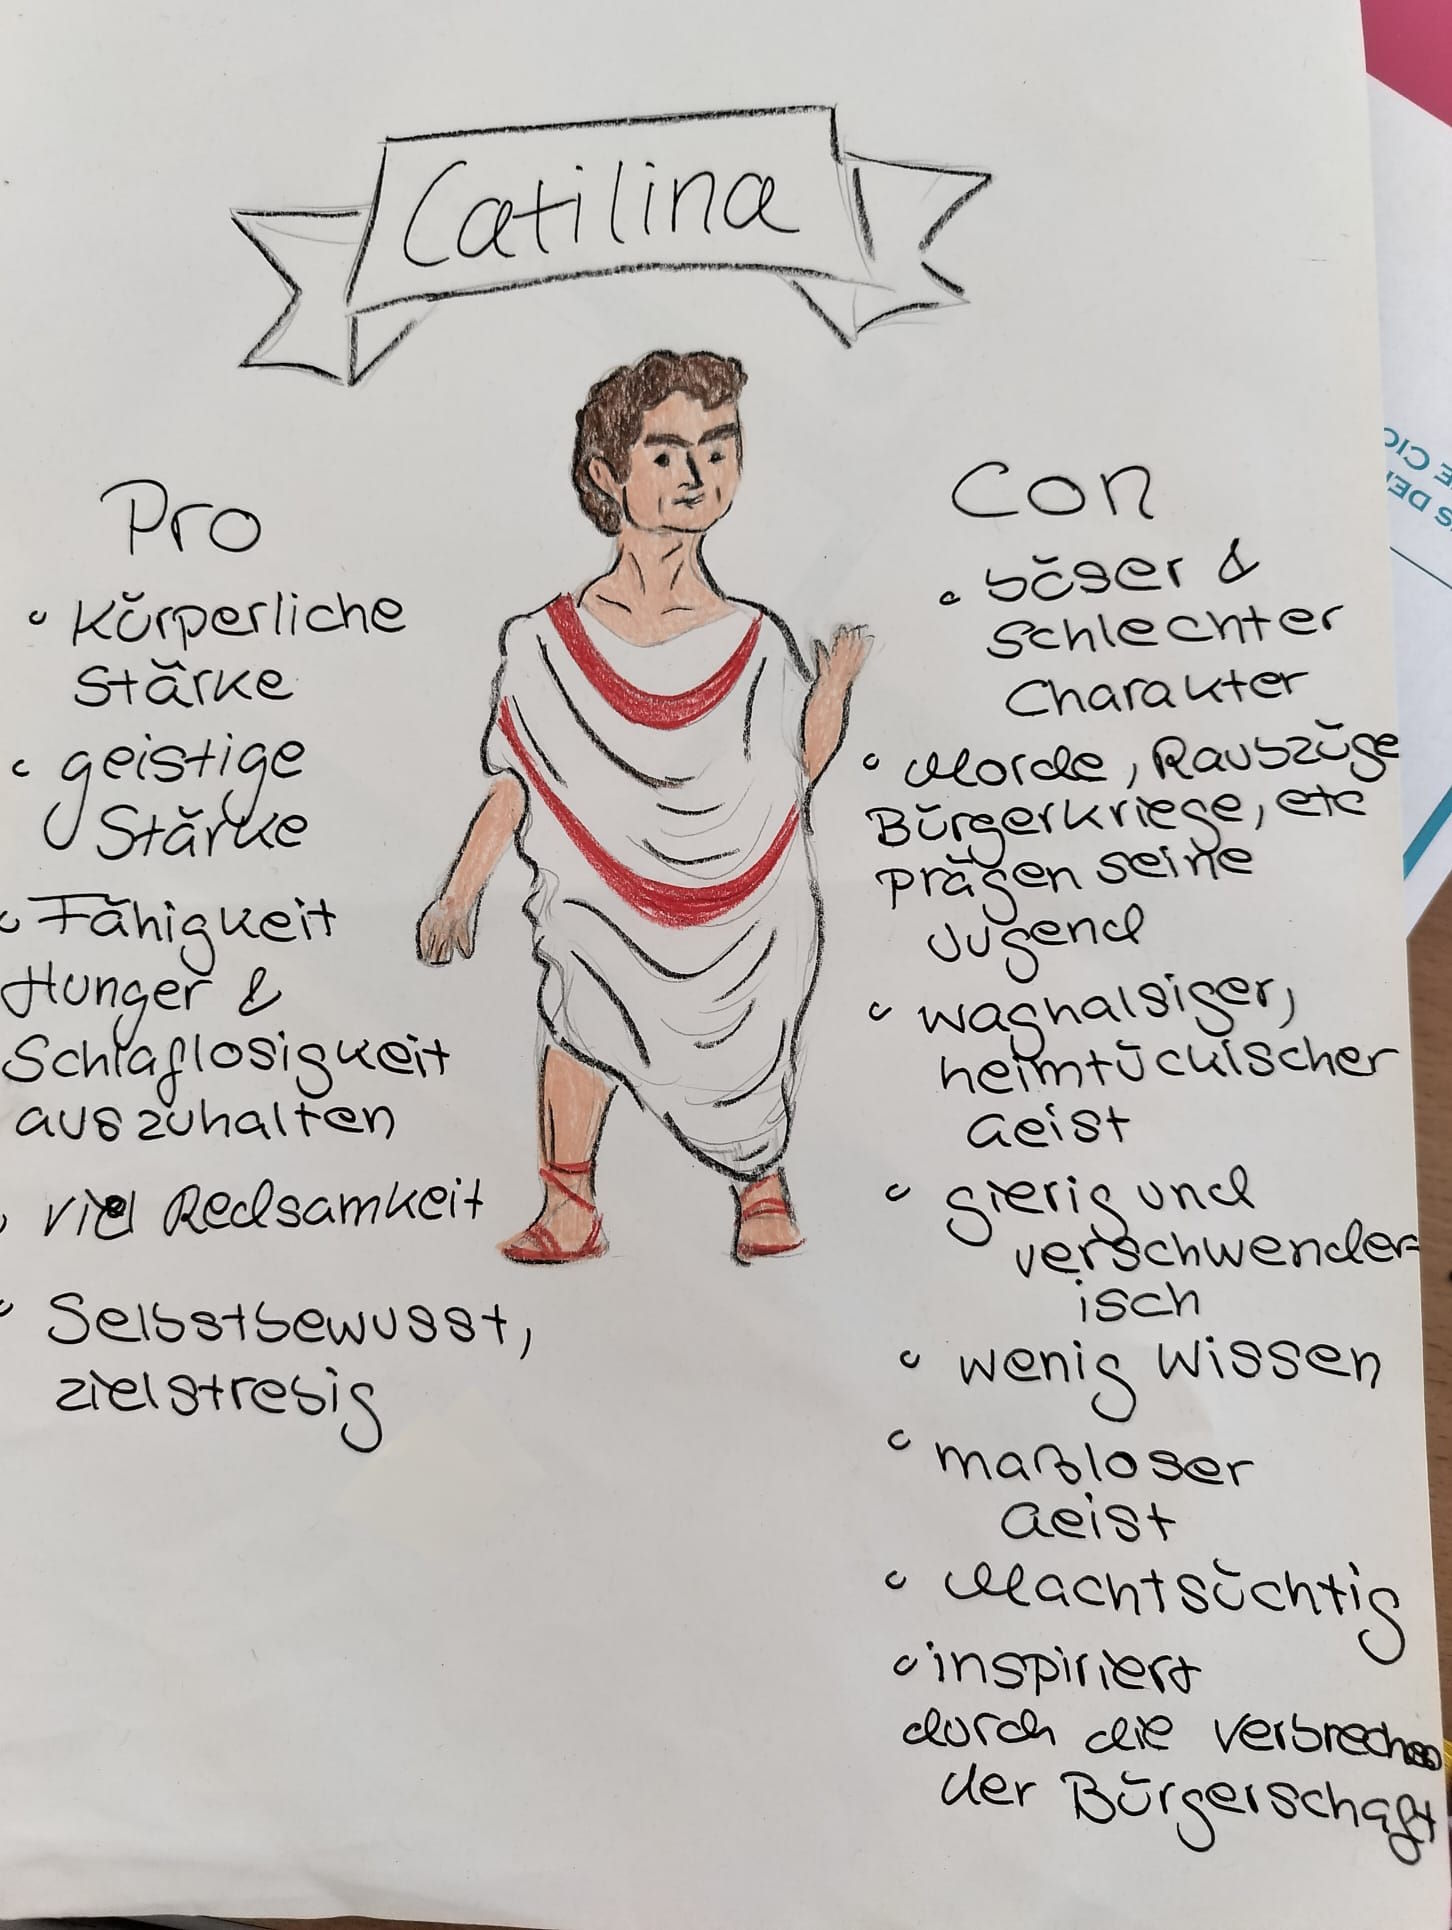 Catilina
Pro
• Körperliche
Stärke
• geistige
Stärke
• Fähigkeit
Hunger &
Schlaflosigkeit
auszuhalten
• viel Redsamkeit
• Selbstbewusst,
zielstrebig
Con
• böser &
schlechter
Charakter
• Morde, Raubzüge
Bürgerkriege, etc
prägen seine
Jugend
• waghalsiger,
heimtückischer
Geist
• gierig und
verschwender=
isch
• wenig Wissen
• maßloser
Geist
• Machtsüchtig
• inspiriert
durch die Verbrechen
der Bürgerschaft